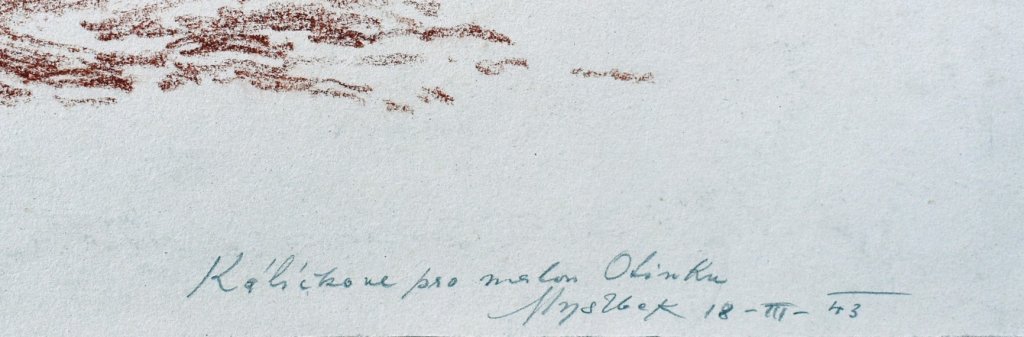 Káličkove pro malou Otinku
Myslbek 18-III-43